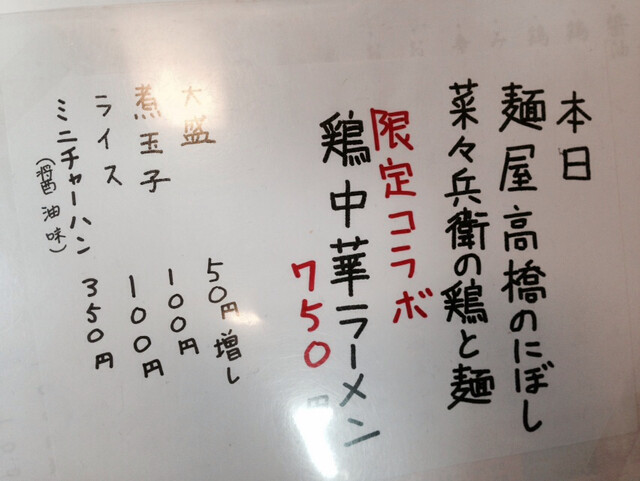 本日
麺屋高橋のにぼし
菜々兵衛の鶏と麺
限定コラボ
鶏中華ラーメン
750円
大盛 50円増し
煮玉子 100円
ライス 100円
ミニチャーハン 350円
(醤油味)